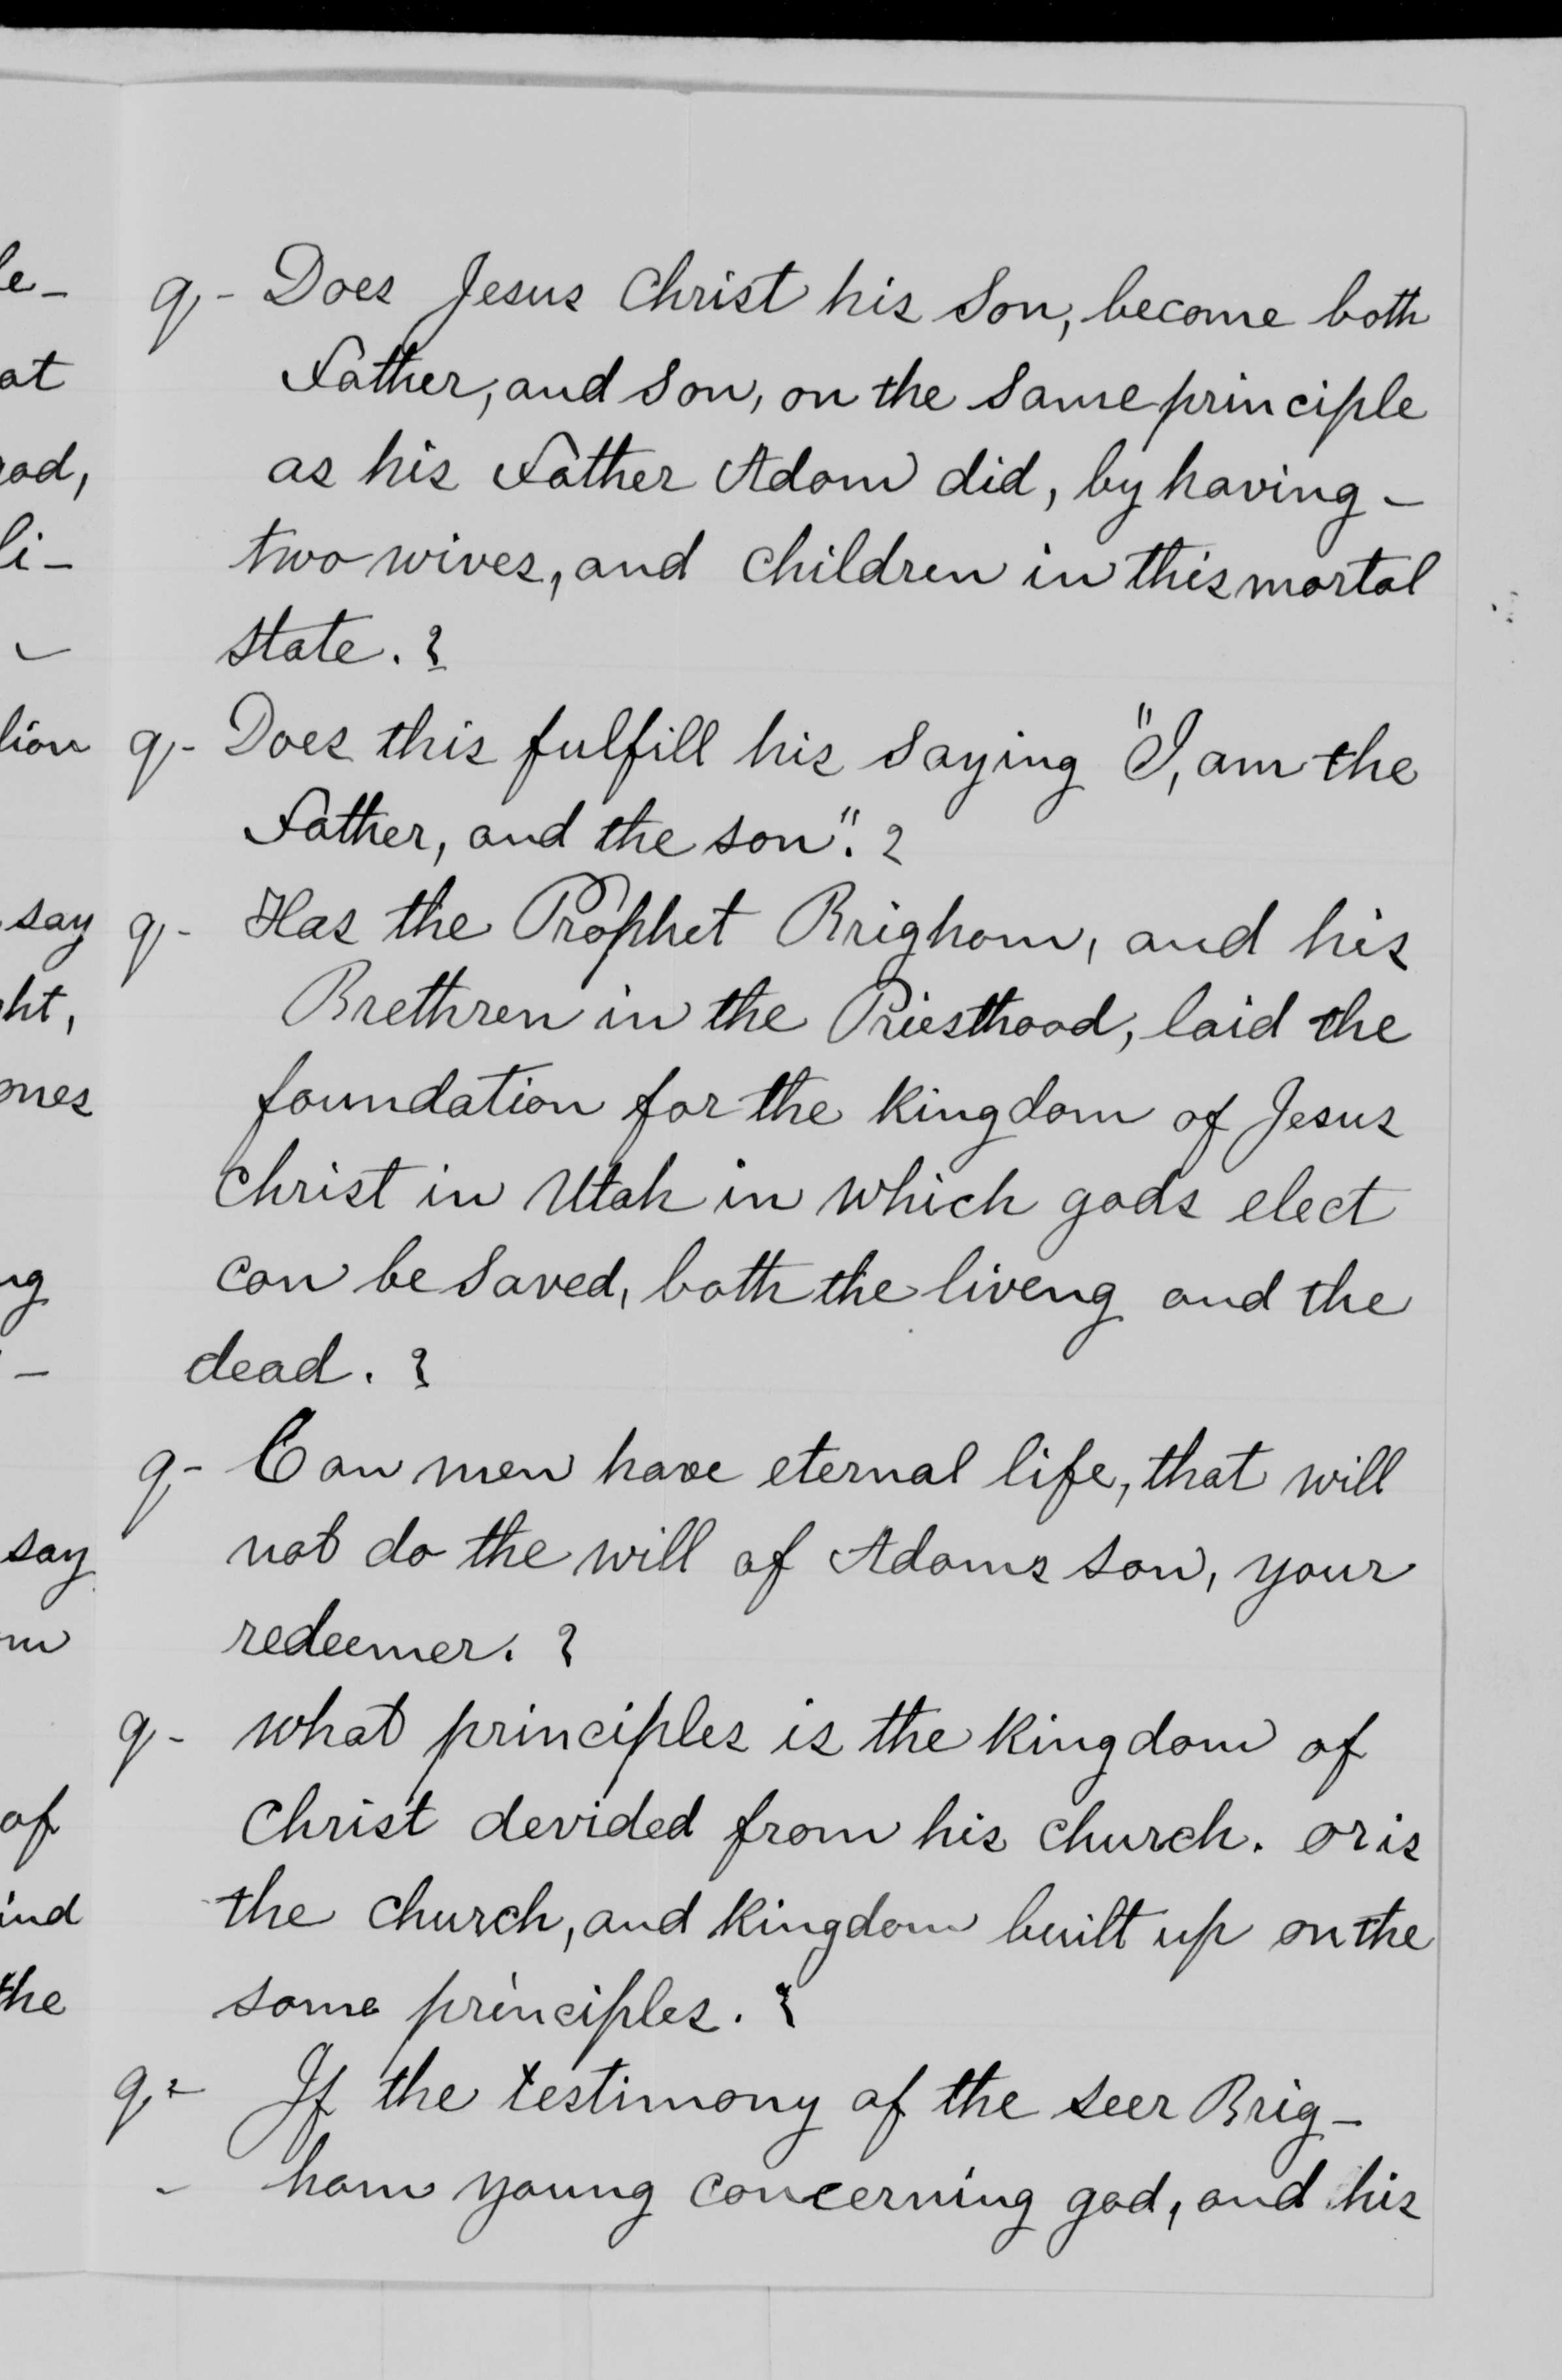 q- Does Jesus Christ his Son, become both
Father, and Son, on the same principle
as his Father Adam did, by having -
two wives, and children in this mortal
state. ?
q- Does this fulfill his saying "I, am the
Father, and the son". ?
q- Has the Prophet Brigham, and his
Brethren in the Priesthood, laid the
foundation for the kingdom of Jesus
Christ in Utah in which gods elect
can be saved, both the liveng and the
dead. ?
q- Can men have eternal life, that will
not do the will of Adams son, your
redeemer. ?
q- what principles is the kingdom of
Christ devided from his church. or is
the church, and kingdom built up on the
same principles. ?
q- If the testimony of the seer Brig-
- ham young concerning god, and his
le-
at
rod,
li-
lion
say
ht,
ones
ng
say
of
ind
the